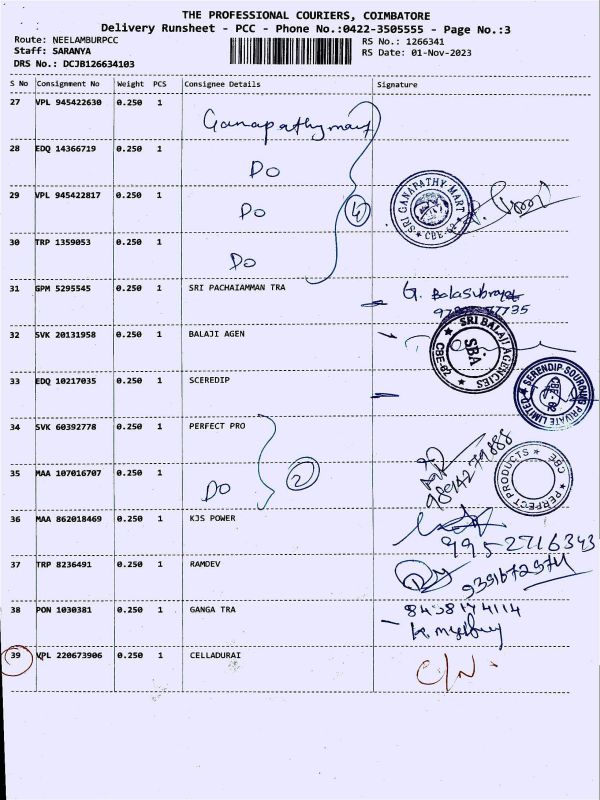 THE PROFESSIONAL COURIERS, COIMBATORE
Delivery Runsheet - PCC - Phone No.:0422-3505555 - Page No.:3
Route: NEELAMBURPCC
Staff: SARANYA
DRS No.: DCJB126634103
RS No.: 1266341
RS Date: 01-Nov-2023
S No Consignment No Weight PCS Consignee Details Signature
27 VPL 945422630 0.250 1 Ganapathy mart
28 EDQ 14366719 0.250 1 Do
29 VPL 945422817 0.250 1 Do
4
SRI GANAPATHY MART
★ CBE-62 ★
30 TRP 1359053 0.250 1 Do
31 GPM 5295545 0.250 1 SRI PACHAIAMMAN TRA G.
32 SVK 20131958 0.250 1 BALAJI AGEN
SRI BALAJI AGENCIES
SBA
CBE-62
33 EDQ 10217035 0.250 1 SCEREDIP
SERENDIP SOURCING PRIVATE LIMITED
CBE - 62
34 SVK 60392778 0.250 1 PERFECT PRO
35 MAA 107016707 0.250 1 Do
2
9894279888
PERFECT PRODUCTS ★ CBE ★
36 MAA 862018469 0.250 1 KJS POWER
9952716343
37 TRP 8236491 0.250 1 RAMDEV
38 PON 1030381 0.250 1 GANGA TRA
39 VPL 220673906 0.250 1 CELLADURAI C/N.